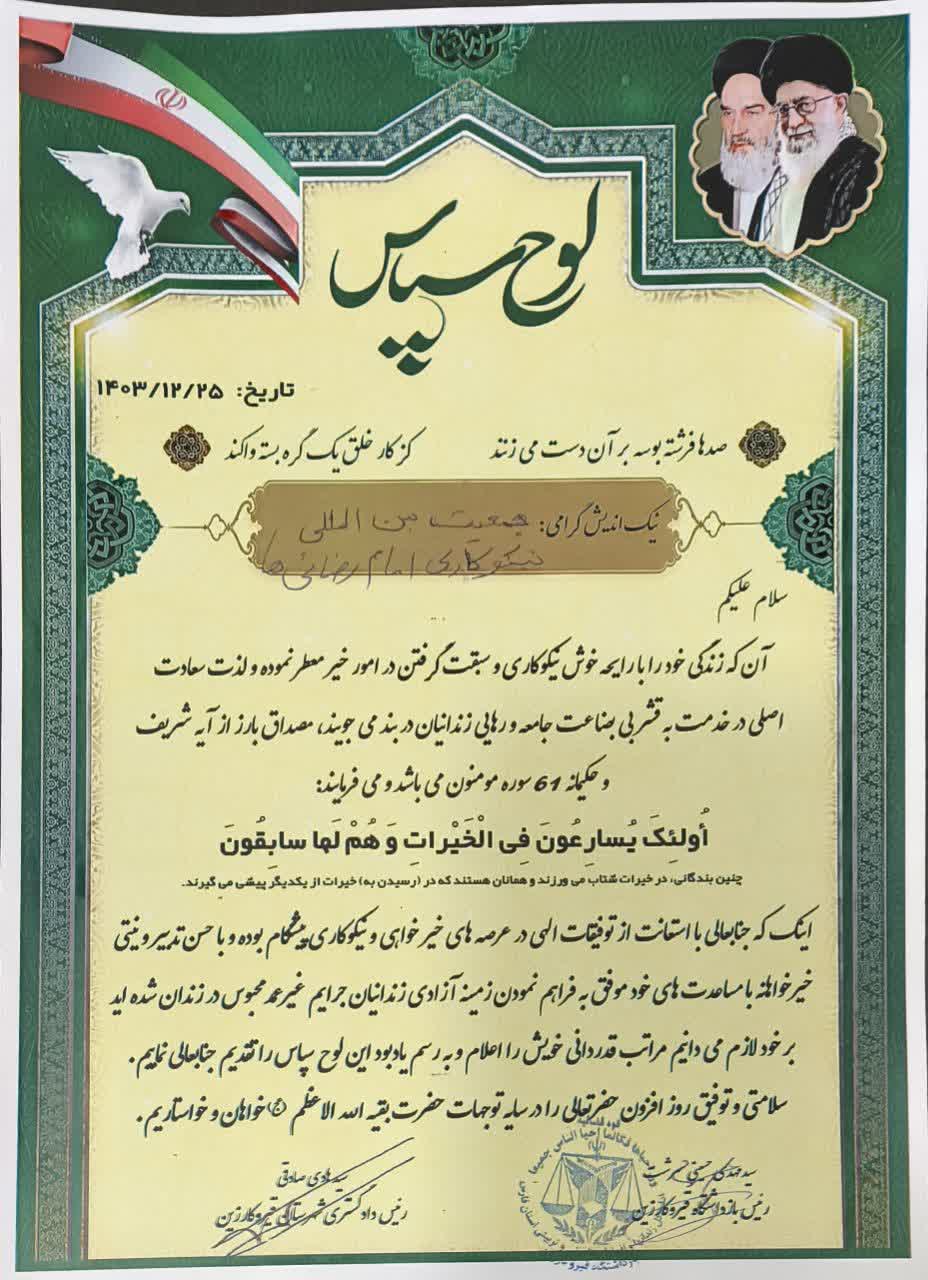 لوح سپاس
تاریخ: ۱۴۰۳/۱۲/۲۵
صدها فرشته بوسه بر آن دست می زنند کز کار خلق یک گره بسته وا کند
نیک اندیش گرامی: جمعیت بین المللی
نیکوکاری امام رضائی ها
سلام علیکم
آن که زندگی خود را با رایحه خوش نیکوکاری و سبقت گرفتن در امور خیر معطر نموده و لذت سعادت
اصلی در خدمت به قشر بی بضاعت جامعه و رهایی زندانیان در بند می جویند، مصداق بارز از آیه شریف
و حکیمانه 61 سوره مومنون می باشد و می فرمایند:
أُولئِکَ یُسارِعُونَ فِی الْخَیْراتِ وَ هُمْ لَها سابِقُونَ
چنین بندگانی، در خیرات شتاب می ورزند و همانان هستند که در (رسیدن به) خیرات از یکدیگر پیشی می گیرند.
اینک که جنابعالی با استعانت از توفیقات الهی در عرصه های خیر خواهی و نیکوکاری پیشگام بوده و با حسن تدبیر و نیتی
خیرخواهانه با مساعدت های خود موفق به فراهم نمودن زمینه آزادی زندانیان جرایم غیرعمد محبوس در زندان شده اید
بر خود لازم می دانیم مراتب قدردانی خویش را اعلام و به رسم یادبود این لوح سپاس را تقدیم جنابعالی نماییم.
سلامتی و توفیق روز افزون حضرتعالی را در سایه توجهات حضرت بقیه الله الاعظم (عج) خواهان و خواستاریم.
قوه قضائیه
سید هادی صادقی
رئیس دادگستری شهرستان قیروکارزین
سید مهدی حسینی
رئیس بازداشتگاه قیروکارزین